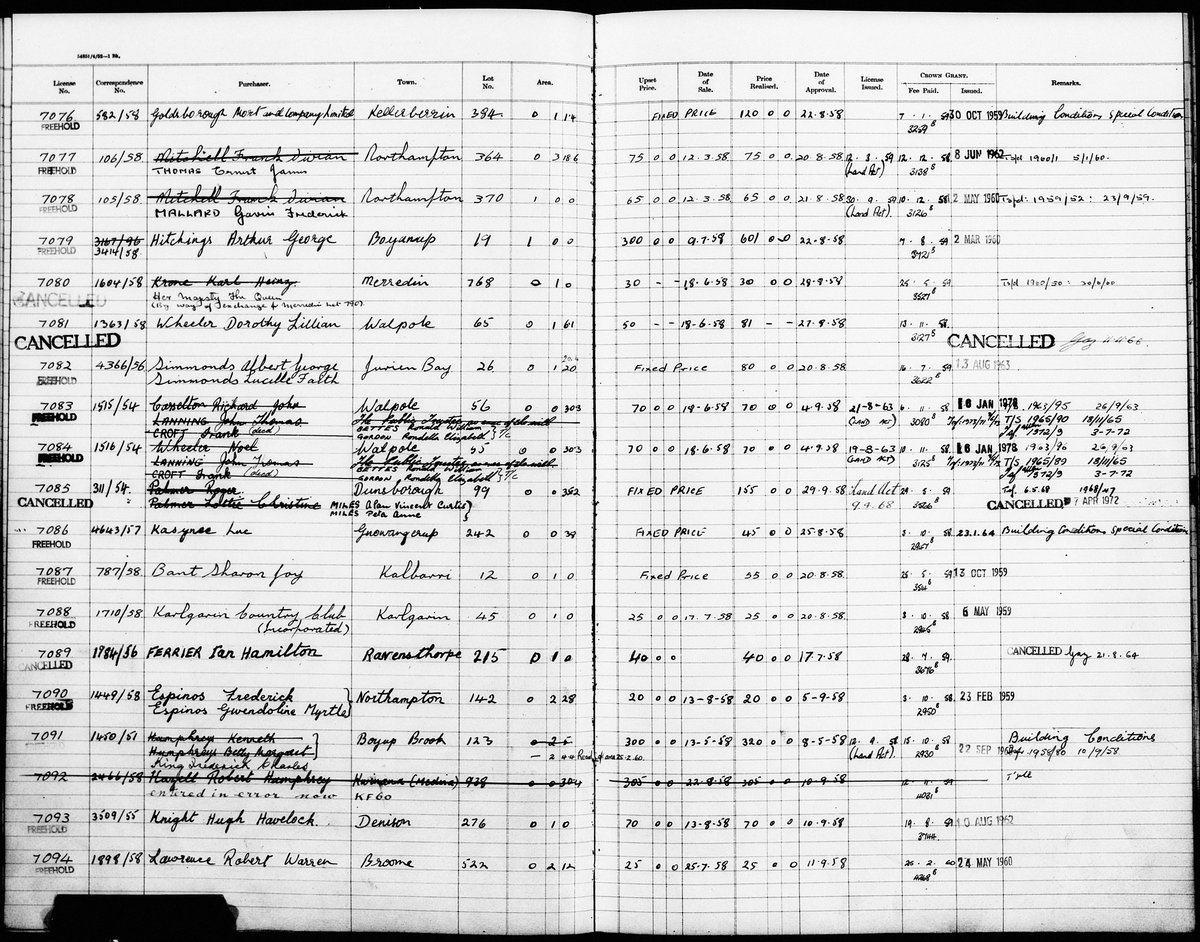 License No. Correspondence No. Purchaser. Town. Lot No. Area. Upset Price. Date of Sale. Price Realised. Date of Approval. License Issued. CROWN GRANT. Fee Paid. Issued. Remarks.
7076 582/58 Goldsborough Mort and Company Limited Kellerberrin 384 0 1 14 FIXED PRICE 120 0 0 22.8.58 7.1.59 30 OCT 1959 Building Conditions Special Condition
FREEHOLD 3259
7077 106/58 Mitchell Frank Vivian Northampton 364 0 2 18.6 75 0 0 12.3.58 75 0 0 20.8.58 12.8.59 12.12.58 8 JUN 1962 Tsfd 1960/1 5/1/60.
FREEHOLD THOMAS Ernest James (Land Act) 3138
7078 105/58 Mitchell Frank Vivian Northampton 370 1 0 0 65 0 0 12.3.58 65 0 0 21.8.58 30.9.59 10.12.58 2 MAY 1960 Tsfd: 1959/52: 23/9/59.
FREEHOLD MALLARD Gavin Frederick (Land Act). 3126
7079 3167/96 Hitchings Arthur George Boyanup 19 1 0 0 300 0 0 9.7.58 601 0 0 22-8-58 7.8.59 2 MAR 1960
FREEHOLD 3414/58 3721
7080 1604/58 Krone Karl Heinz Merredin 768 0 1 0 30 - - 18-6-58 30 0 0 28-8-58 25.5.59
CANCELLED Her Majesty The Queen 3527
(By way of exchange for Merredin Lot 790)
7081 1363/58 Wheeler Dorothy Lillian Walpole 65 0 1 61 50 - - 18-6-58 81 - - 27-8-58 13.11.58
CANCELLED 3127 CANCELLED Gaz 4.4.66
7082 4366/56 Simmonds Albert George Jurien Bay 26 0 1 20 Fixed Price 80 0 0 20.8.58 16.7.59 13 AUG 1963
FREEHOLD Simmonds Lucelle Faith 3622
7083 1515/54 Casselton Richard John Walpole 56 0 0 303 70 0 0 18-6-58 70 0 0 4.9.58 21-8-63 6.11.58 16 JAN 1978 T/S. 1963/95 26/9/63
FREEHOLD LANNING John Thomas The Public Trustee (LAND ACT) 3080 T/S 1965/90 18/11/65
CROFT Frank (decd) BETTES Ronald William
GORDON Rondella Elizabeth } T/C 1972/9 3-7-72
7084 1516/54 Wheeler Noel Walpole 55 0 0 303 70 0 0 18-6-58 70 0 0 4.9.58 19-8-63 10.11.58 16 JAN 1978 1963/96 26/9/63
FREEHOLD LANNING John Thomas The Public Trustee (LAND ACT) 3125 T/S 1965/89 18/11/65
CROFT Frank (decd) BETTES Ronald William
GORDON Rondella Elizabeth } T/C 1972/9 3-7-72
7085 311/54. Palmer Roger Dunsborough 99 0 0 352 FIXED PRICE 155 0 0 29.9.58 Land Act 29.5.59 Tsf. 6.5.68 1968/47
CANCELLED Palmer Lottie Christine MILES Alan Vincent Curtis } 9.9.68 CANCELLED 7 APR 1972
MILES Peta Anne
7086 4643/57 Kasynec Luc Gnowangerup 242 0 0 39 FIXED PRICE 45 0 0 25-8-58 3.10.58 23.1.64 Building Conditions Special Condition
FREEHOLD 2967
7087 787/58 Bant Sharon Joy Kalbarri 12 0 1 0 Fixed Price 55 0 0 20.8.58 25.5.59 13 OCT 1959
FREEHOLD
7088 1710/58 Karlgarin Country Club Karlgarin 45 0 1 0 25 0 0 17.7.58 25 0 0 20.8.58 3.10.58 6 MAY 1959
FREEHOLD (Incorporated) 2966
7089 1984/56 FERRIER Ian Hamilton Ravensthorpe 215 0 1 0 40 0 0 40 0 0 17.7.58 28.7.59 CANCELLED Gaz 21.8.64
CANCELLED 3676
7090 1449/58 Espinos Frederick } Northampton 142 0 2 28 20 0 0 13-8-58 20 0 0 5-9-58 3.10.58 23 FEB 1959
FREEHOLD Espinos Gwendoline Myrtle } 2950
7091 1450/51 Humphrey Kenneth } Boyup Brook 123 0 2 5 300 0 0 13-5-58 320 0 0 8-5-58 12.9.58 15.10.58 22 SEP 1960 Building Conditions
FREEHOLD Humphreys Betty Margaret - 2 4.4 25-2-60. (Land Act). 2930 1958/80 10/9/58
King Frederick Charles
7092 2466/58 Hazell Robert Humphrey Kwinana (Medina) 928 0 0 30.4 305 0 0 22.8.58 305 0 0 10.9.58 12.11.59
entered in error now KF60 4031
7093 3509/55 Knight Hugh Havelock. Denison 276 0 1 0 70 0 0 13-8-58 70 0 0 10.9.58 19.8.59 10 AUG 1962
FREEHOLD 3744
7094 1898/58 Lawrence Robert Warren Broome 522 0 2 12 25 0 0 25.7.58 25 0 0 11.9.58 25.2.60 24 MAY 1960
FREEHOLD 4268